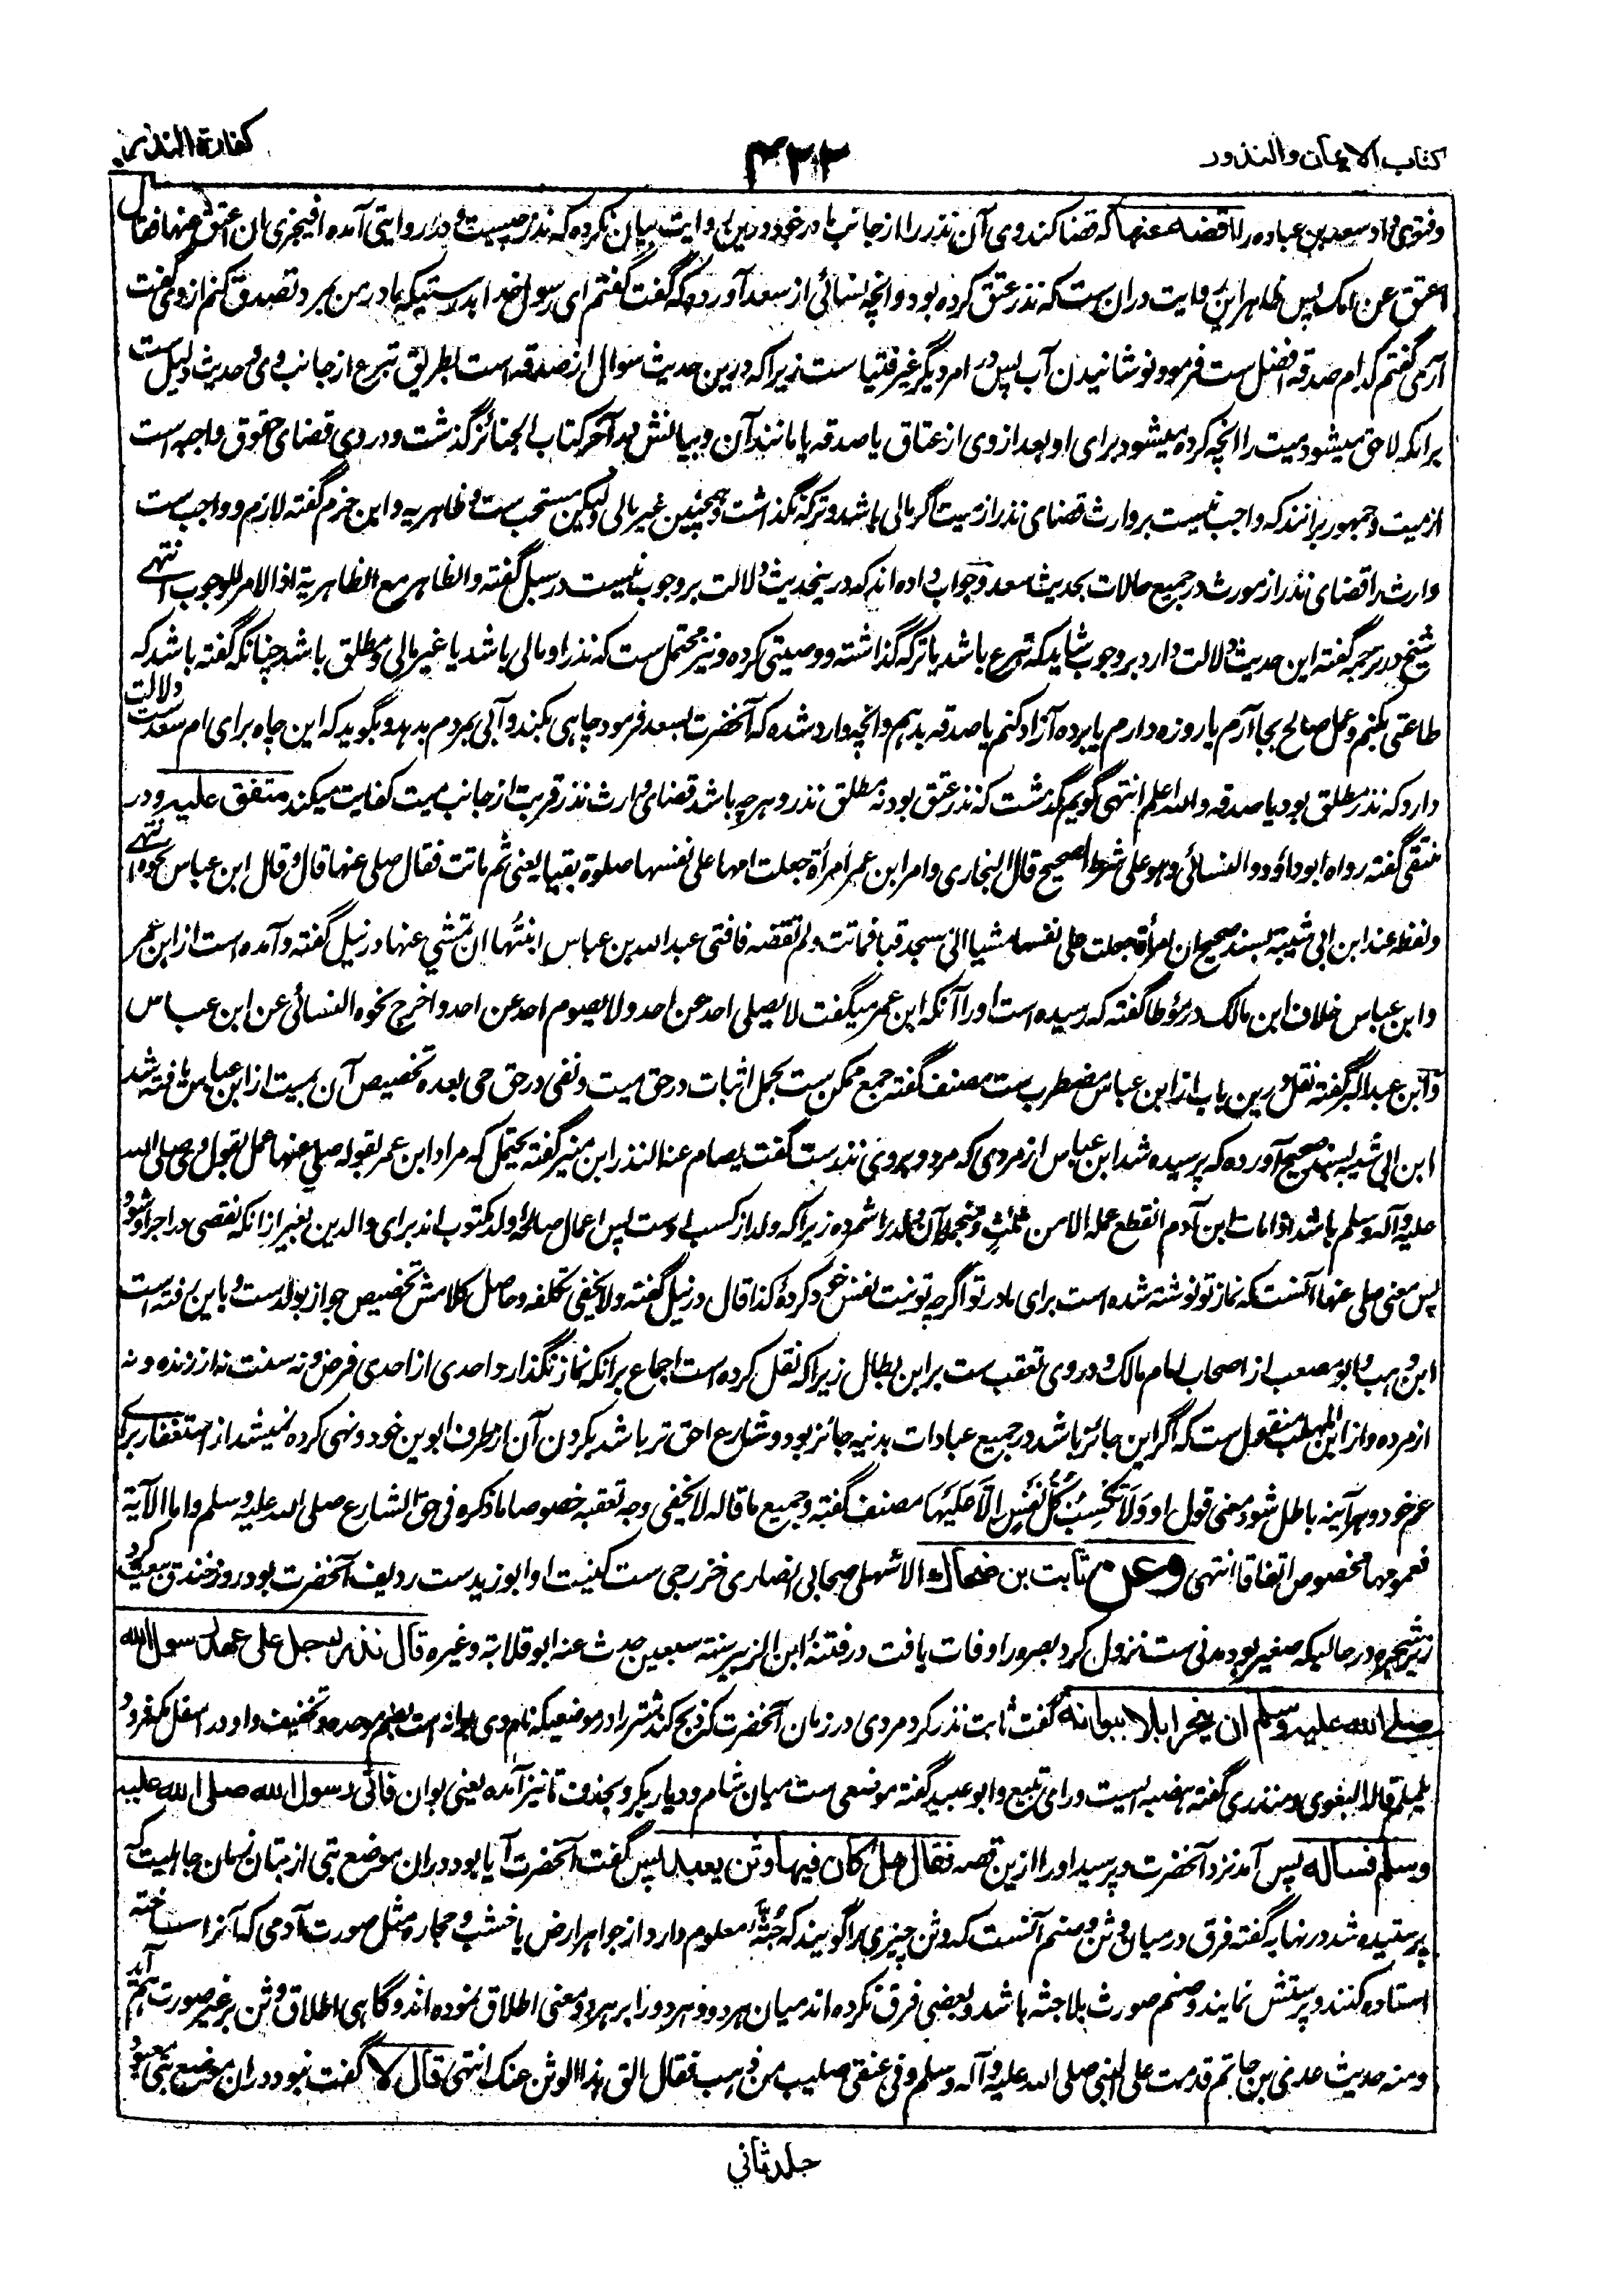 کتاب الایمان والنذور
۳۲۲
کفارة النذر
وفتوی داد سعد بن عباده را اقضه عنها که قضا کند وی آن نذر را از جانب مادر خود و درین روایت بیان نکرده که نذر چیست و در روایتی آمده افیجزی ان اعتق عنها قال
اعتق عن امک پس ظاهر این روایت دران ست که نذر عتق کرده بود و انچه نسائی از سعد آورده که گفت گفتم ای رسول خدا بدرستیکه مادر من بمرد تصدق کنم از وی گفت
آری گفتم کدام صدقه افضل ست فرمود نوشانیدن آب پس در امر دیگر غیر فتیا ست زیرا که درین حدیث سوال از صدقه است بطریق تبرع از جانب وی و حدیث دلیل ست
برانکه لاحق میشود میت را انچه کرده میشود برای او بعد از وی از عتاق یا صدقه یا مانند آن و بیانش در آخر کتاب الجنائز گذشت و در وی قضای حقوق واجبه است
از میت و جمهور برانند که واجب نیست بر وارث قضای نذر از میت اگر مالی باشد و ترکه نگذاشت و همچنین غیر مالی ولیکن مستحب ست و ظاهریه و ابن حزم گفته لازم و واجب ست
وارث را قضای نذر از مورث در جمیع حالات بحدیث سعد و جواب داده اند که درینحدیث دلالت بر وجوب نیست در سبل گفته والظاهر مع الظاهریة اذ الامر للوجوب انتهی
شیخ در ترجمه گفته این حدیث دلالت دارد بر وجوب شاید که تبرع باشد یا ترکه گذاشته و وصیتی کرده و نیز محتمل ست که نذر او مالی باشد یا غیر مالی و مطلق باشد چنانکه گفته باشد که
طاعتی بکنم و عمل صالح بجا آرم یا روزه دارم یا برده آزاد کنم یا صدقه بدهم و انچه وارد شده که آنحضرت بسعد فرمود چاهی بکند و آبی بمردم بدهد و بگوید که این چاه برای ام سعد ست دلالت
دارد که نذر مطلق بود یا صدقه والله اعلم انتهی گویم گذشت که نذر عتق بود نه مطلق نذر و هر چه باشد قضای وارث نذر قربت از جانب میت کفایت میکند متفق علیه و در
منتقی گفته رواه ابوداؤد والنسائی وهو علی شرط الصحیح قال البخاری وامر ابن عمر امرأة جعلت امها علی نفسها صلوة بقبا یعنی ثم ماتت فقال صلی عنها قال وقال ابن عباس نحوه انتهی
ولفظه عند ابن ابی شیبة بسند صحیح ان امرأة جعلت علی نفسها مشیا الی مسجد قبا فماتت ولم تقضه فافتی عبد الله بن عباس ابنتها ان تمشی عنها در نیل گفته و آمده است از ابن عمر
و ابن عباس خلاف این مالک در مؤطا گفته که رسیده است او را آنکه ابن عمر میگفت لا یصلی احد عن احد ولا یصوم احد عن احد واخرج نحوه النسائی عن ابن عباس
و ابن عبدالبر گفته نقل درین باب از ابن عباس مضطرب ست مصنف گفته جمع ممکن ست بحمل اثبات در حق میت و نفی در حق حی بعده تخصیص آن بمیت از ابن عباس یافته شد
ابن ابی شیبه بسند صحیح آورده که پرسیده شد ابن عباس از مردی که مرد و بر وی نذرست گفت یصام عنه النذر ابن منیر گفته یحتمل که مراد ابن عمر بقوله صلی عنها عمل بقول وی صلی الله
علیه وآله وسلم باشد اذا مات ابن آدم انقطع عمله الا من ثلث و منجمله آن ولد را شمرده زیرا که ولد از کسب اوست پس اعمال صالحه ولد مکتوب اند برای والدین بغیر ازانکه نقصی در اجر او شود
پس معنی صلی عنها آنست که نماز تو نوشته شده است برای مادر تو اگرچه تو نیت نفس خود کردۀ کذا قال در نیل گفته ولا یخفی تکلفه و حاصل کلامش تخصیص جواز بولد ست و باین رفته است
ابن وهب و ابو مصعب از اصحاب امام مالک و در وی تعقب ست بر ابن بطال زیرا که نقل کرده است اجماع برانکه نماز نگذارد احدی از احدی فرض و نه سنت نه از زنده و نه
از مرده و از ابن المهلب منقول ست که اگر این جائز باشد در جمیع عبادات بدنیه جائز بود و شارع احق تر باشد بکردن آن از طرف ابوین خود و نهی کرده نمیشد از استغفار برای
عم خود و هر آینه باطل شود معنی قول او وَلَا تَکْسِبُ کُلُّ نَفْسٍ اِلَّا عَلَیْهَا مصنف گفته وجمیع ما قاله لا یخفی وجه تعقبه خصوصا ما ذکره فی حق الشارع صلی الله علیه وسلم واما الآیة
فعمومها مخصوص اتفاقا انتهی وعن ثابت بن ضحاك الاشهلی صحابی انصاری خزرجی ست کنیت او ابو زید ست ردیف آنحضرت بود روز خندق بیعت کرد
زیر شجره در حالیکه صغیر بود مدنی ست نزول کرد ببصره و وفات یافت در فتنۀ ابن الزبیر سنته سبعین حدث عنه ابو قلابة وغیره قال نذر رجل علی عهد رسول الله
صلی الله علیه وسلم ان ینحر ابلا ببوانة گفت ثابت نذر کرد مردی در زمان آنحضرت که ذبح کند شتر را در موضعیکه نام وی بوانه است بضم موحده و تخفیف واو در اسفل مکه فرود
یلملم قاله البغوی و منذری گفته هضبه ایست ورای ینبع و ابو عبید گفته موضعی ست میان شام و دیار بکر و بحذف تا نیز آمده یعنی بوان فاتی رسول الله صلی الله علیه
وسلم فسأله پس آمد نزد آنحضرت و پرسید او را ازین قصه فقال هل کان فیها وثن یعبد پس گفت آنحضرت آیا بود دران موضع بتی از بتان زمان جاهلیت که
پرستیده شد در نهایه گفته فرق در میان وثن و صنم آنست که وثن چیزی را گویند که جُثَّۀ معلوم دارد از جواهر ارض یا خشب و حجاره مثل صورت آدمی که آنرا ساخته
استاده کنند و پرستش نمایند و صنم صورت بلا جثه باشد و بعضی فرق نکرده اند میان هر دو و هر دو را بر هر دو معنی اطلاق نموده اند و گاهی اطلاق وثن بر غیر صورت هم آید
ومنه حدیث عدی بن حاتم قدمت علی النبی صلی الله علیه وآله وسلم وفی عنقی صلیب من ذهب فقال الق هذا الوثن عنک انتهی قال لا گفت نبود دران موضع بتی معبود
جلد ثانی